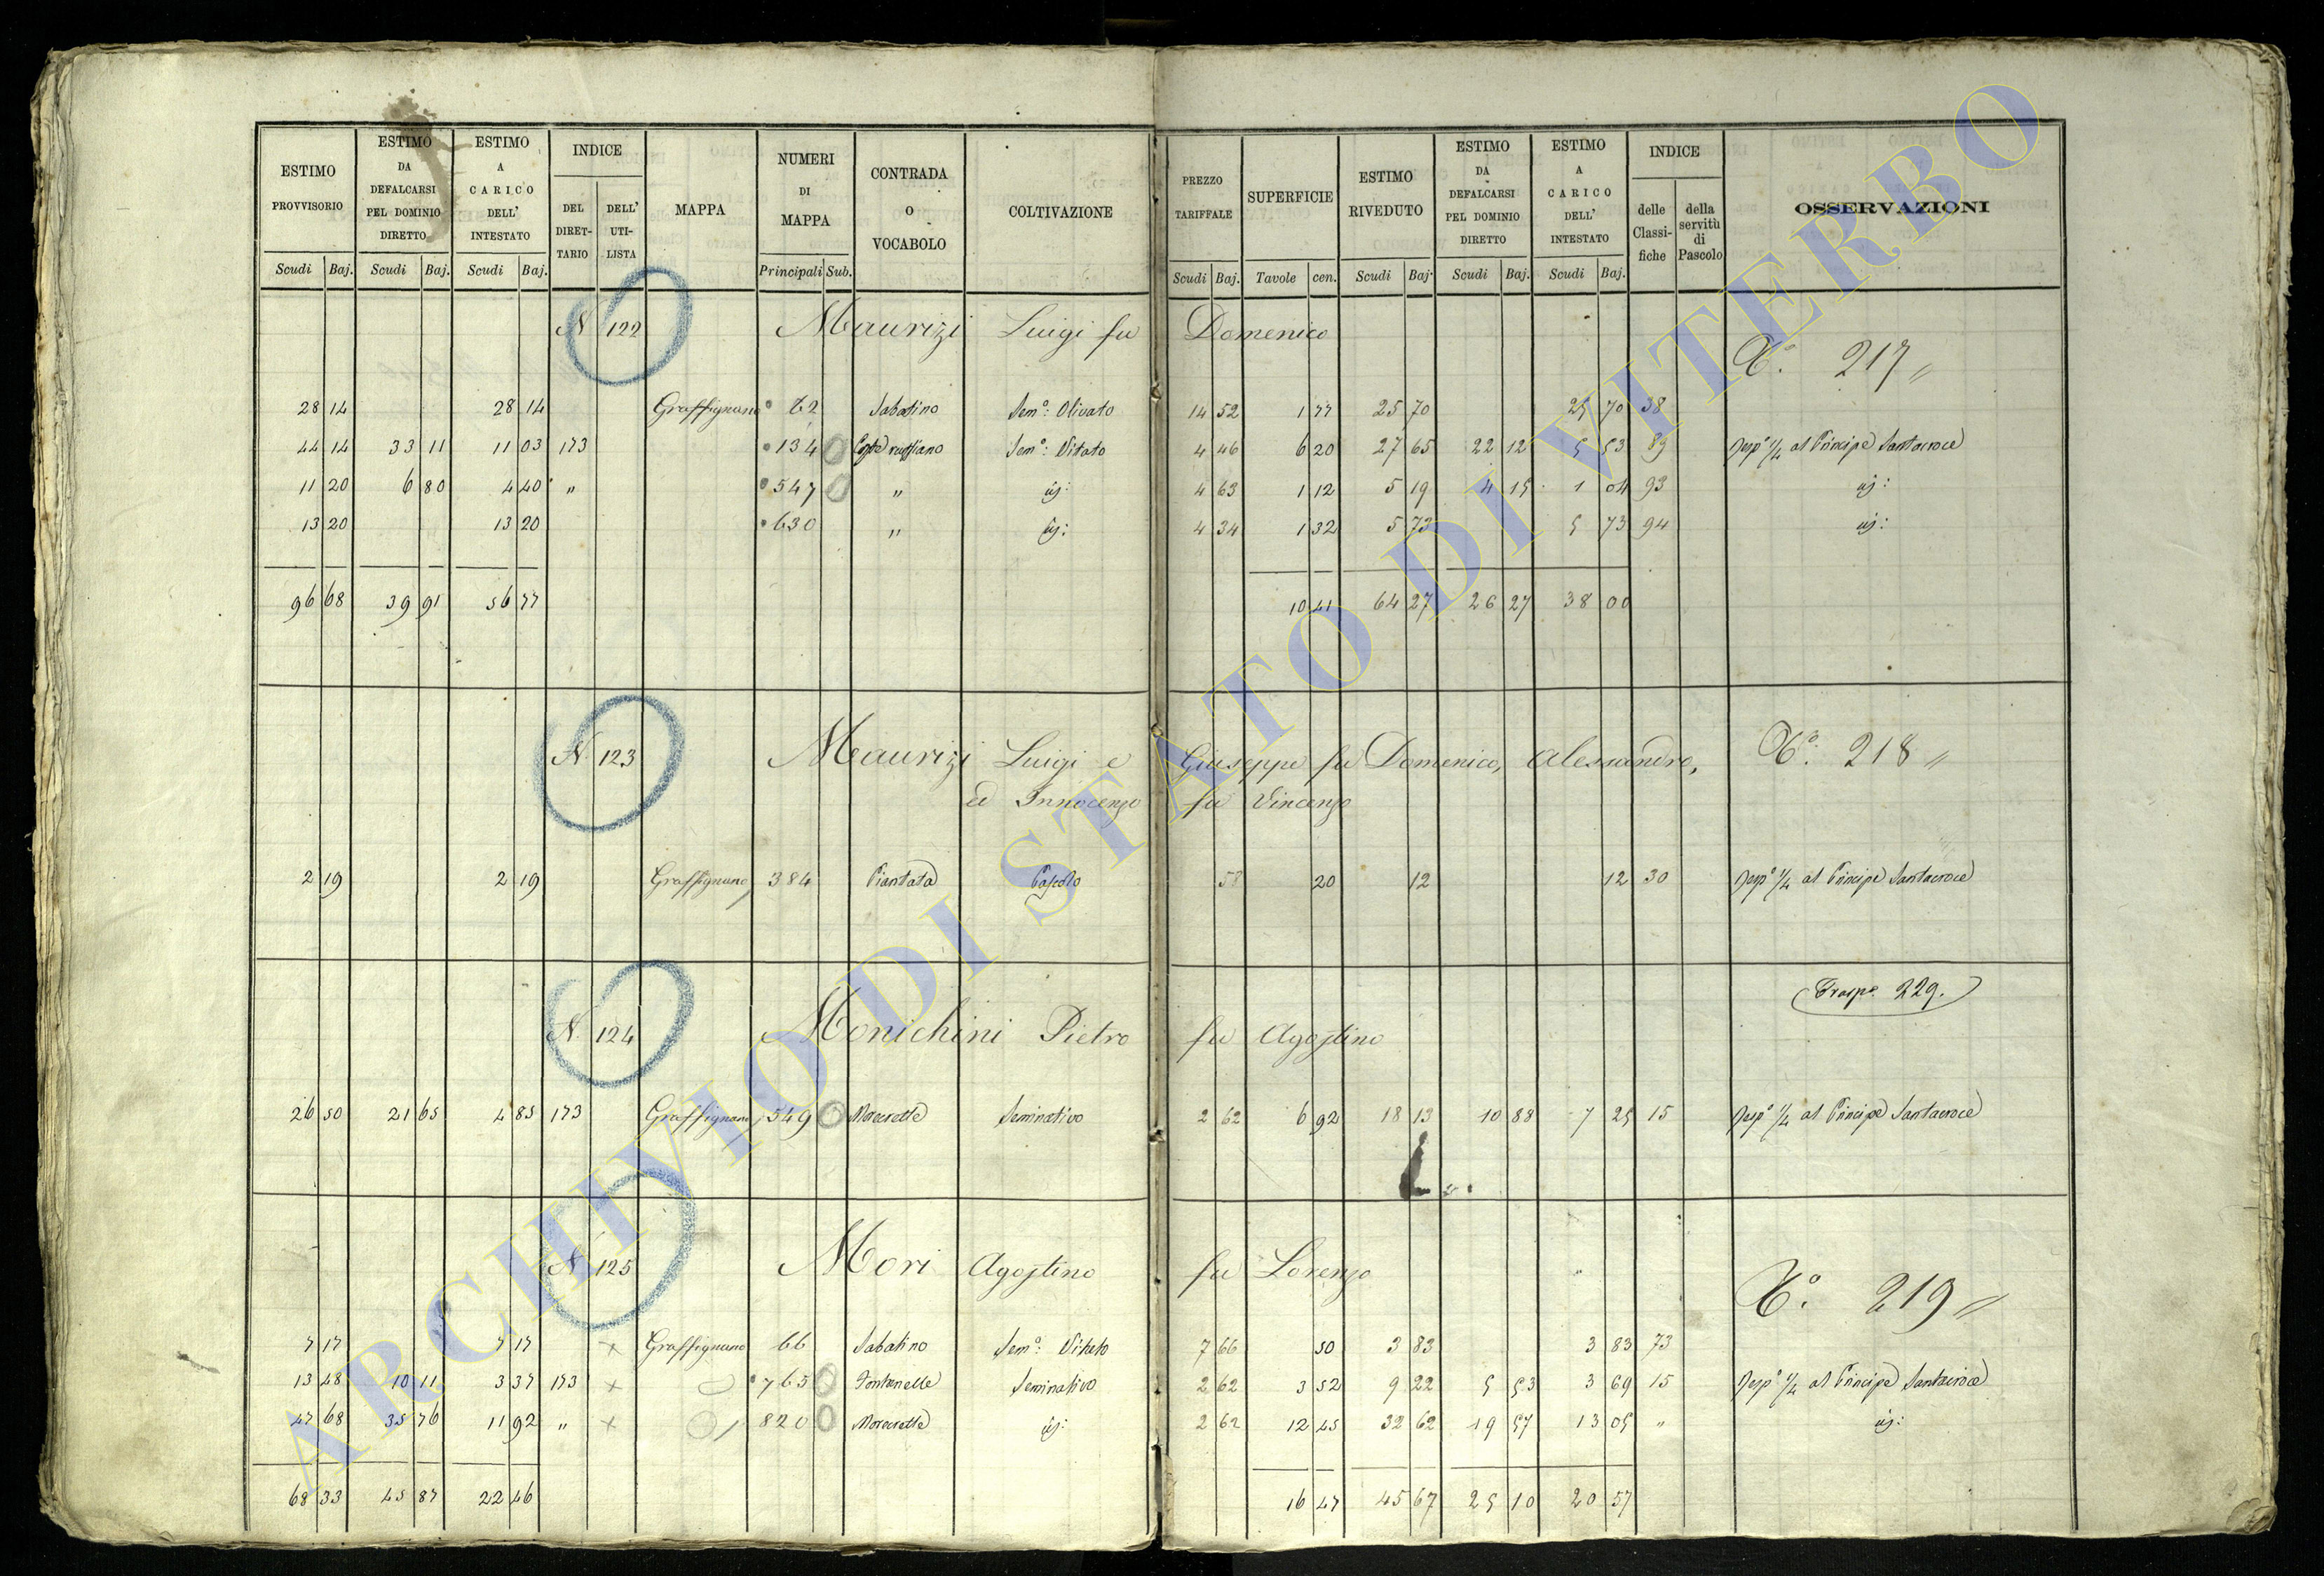 ESTIMO PROVVISORIO
ESTIMO DA DEFALCARSI PEL DOMINIO DIRETTO
ESTIMO A CARICO DELL' INTESTATO
INDICE
DEL DIRET-TARIO
DELL' UTI-LISTA
MAPPA
NUMERI DI MAPPA
CONTRADA O VOCABOLO
COLTIVAZIONE
PREZZO TARIFFALE
SUPERFICIE
ESTIMO RIVEDUTO
ESTIMO DA DEFALCARSI PEL DOMINIO DIRETTO
ESTIMO A CARICO DELL' INTESTATO
INDICE
delle Classi-fiche
della servitù di Pascolo
OSSERVAZIONI
Scudi Baj. Scudi Baj. Scudi Baj. Principali Sub. Scudi Baj. Tavole cen. Scudi Baj. Scudi Baj. Scudi Baj.
N. 122 Maurizi Luigi fu Domenico
N.° 217 "
28 14 28 14 Graffignano 62 Sabatino Sem.°: Olivato 14 52 1 77 25 70 25 70 38
44 14 33 11 11 03 173 134 Sem.°: Vitato 4 46 6 20 27 65 22 12 5 53 89 Resp.e 1/4 al Principe Santacroce
11 20 6 80 4 40 " 547 " id: 4 63 1 12 5 19 4 15 1 04 93 id:
13 20 13 20 630 " id: 4 34 1 32 5 73 5 73 94 id:
96 68 39 91 56 77 10 41 64 27 26 27 38 00
N. 123 Maurizi Luigi e Giuseppe fu Domenico, Alessandro,
N.° 218 "
ed Innocenzo fu Vincenzo
2 19 2 19 Graffignano 384 Piantata Pascolo 58 20 12 12 30 Resp.e 1/4 al Principe Santacroce
Trasp.e 229.
N. 124 Monichini Pietro fu Agostino
26 50 21 65 4 85 173 Graffignano 549 Morecrette Seminativo 2 62 6 92 18 13 10 88 7 25 15 Resp.e 1/4 al Principe Santacroce
N. 125 Mori Agostino fu Lorenzo
N.° 219 "
7 17 7 17 x Graffignano 66 Sabatino Sem.°: Vitato 7 66 50 3 83 3 83 73
13 48 10 11 3 37 173 x 765 Fontanelle Seminativo 2 62 3 52 9 22 5 53 3 69 15 Resp.e 1/4 al Principe Santacroce
47 68 35 76 11 92 " x 820 Morecrette id: 2 62 12 45 32 62 19 57 13 05 " id:
68 33 45 87 22 46 16 47 45 67 25 10 20 57
ARCHIVIO DI STATO DI VITERBO